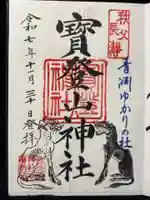 秩父
長瀞
青淵ゆかりの社
寶登山神社
令和七年十一月三十日登拝